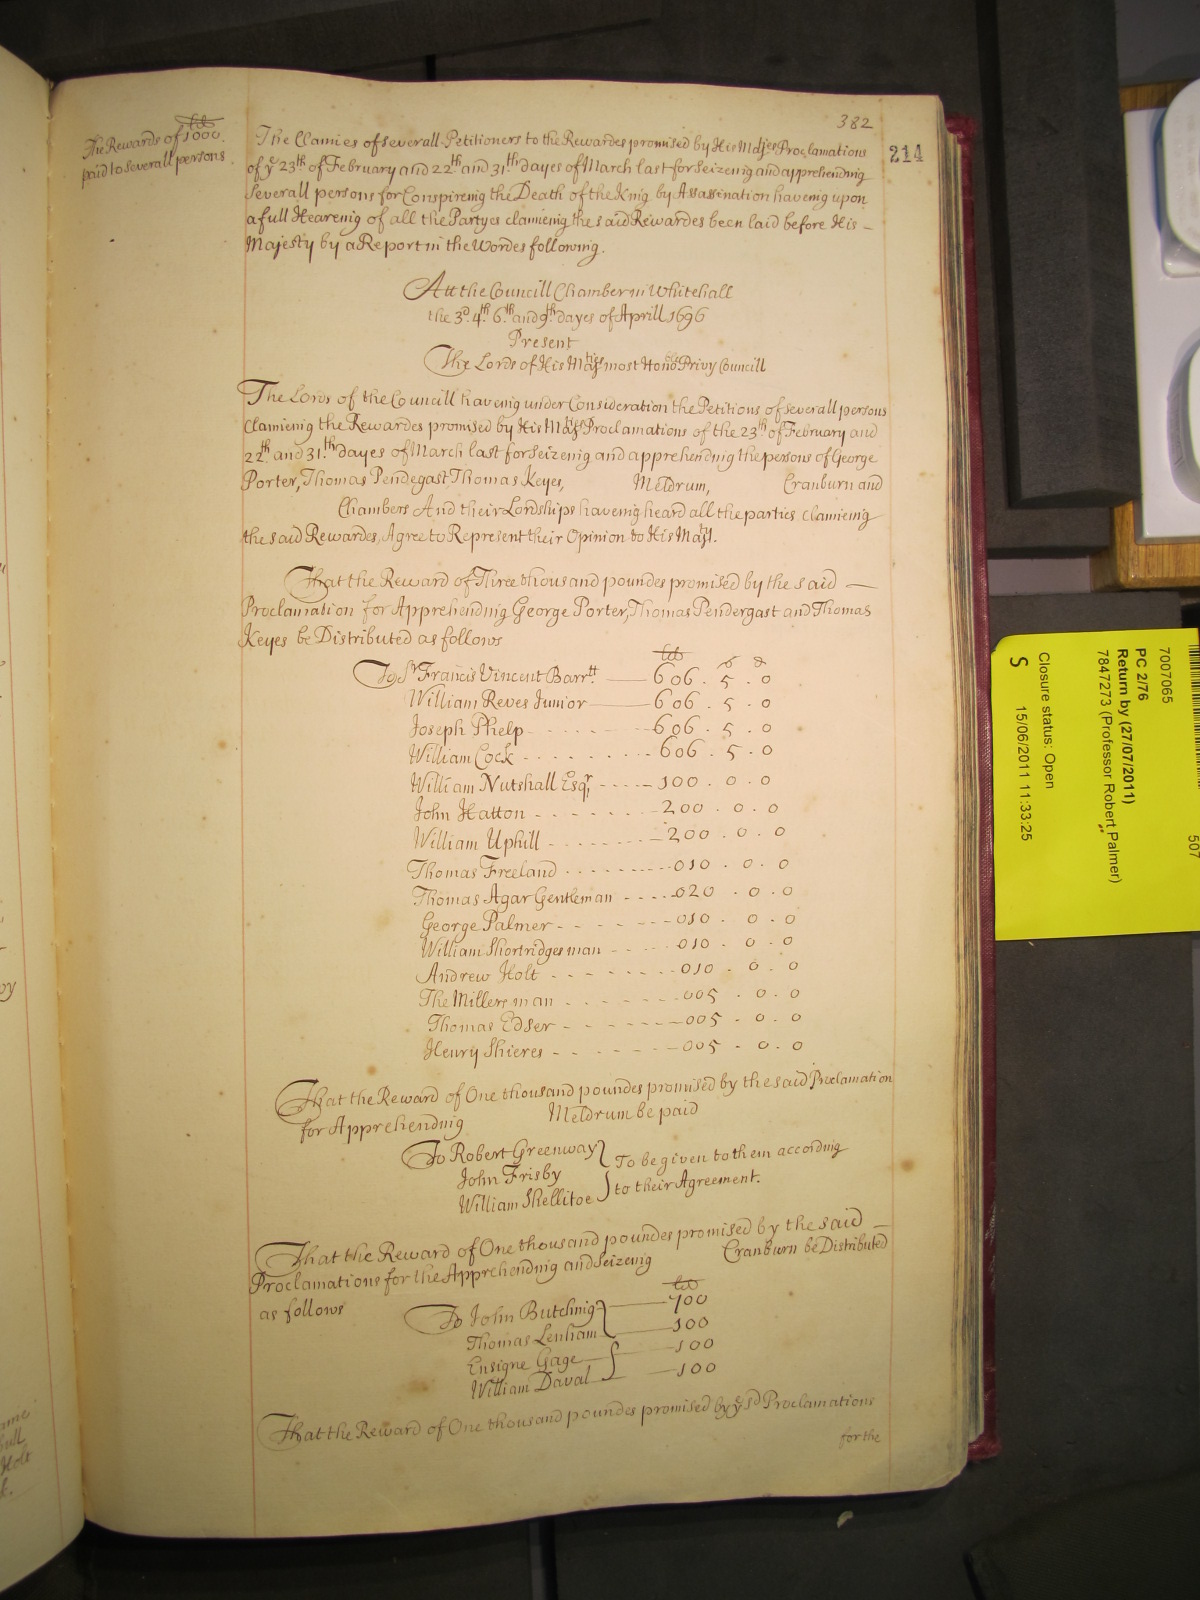 382
214
The Rewards of 1000 lib
paid to severall persons
The Claimes of severall Petitioners to the Rewardes promised by His Majties Proclamations
of ye 23th of February and 22th and 31th dayes of March last for Seizeing and apprehending
Severall persons for Conspireing the Death of the King by Assassination haveing upon
a full Heareing of all the Partyes claimeing the said Rewardes been laid before His –
Majesty by a Report in the Wordes following.
Att the Councill Chamber in Whitehall
the 3d. 4th. 6th. and 9th. dayes of Aprill 1696
Present
The Lords of His Maties most Honoble Privy Councill
The Lords of the Councill haveing under Consideration the Petitions of severall persons
Claimeing the Rewardes promised by His Maties Proclamations of the 23th of February and
22th. and 31th. dayes of March last for Seizeing and apprehending the persons of George
Porter, Thomas Pendegast, Thomas Keyes, Meldrum, Cranburn and
Chambers And their Lordships haveing heard all the parties claimeing
the said Rewardes, Agree to Represent their Opinion to His Maty.
That the Reward of Three thousand poundes promised by the said —
Proclamation for Apprehending George Porter, Thomas Pendergast and Thomas
Keyes be Distributed as follows
lib s d
To Sr. Francis Vincent Barrtt. — 606 . 5 . 0
William Reves Junior — 606 . 5 . 0
Joseph Phelp - - - - - 606 . 5 . 0
William Cock - - - - - 606 . 5 . 0
William Nutshall Esqr. - - - - 100 . 0 . 0
John Hatton - - - - - 200 . 0 . 0
William Uphill - - - - - 200 . 0 . 0
Thomas Freeland - - - - - 010 . 0 . 0
Thomas Agar Gentleman - - - - 020 . 0 . 0
George Palmer - - - - - 010 . 0 . 0
William Shortridges man - - - - 010 . 0 . 0
Andrew Holt - - - - - 010 . 0 . 0
The Millers man - - - - - 005 . 0 . 0
Thomas Edser - - - - - 005 . 0 . 0
Henry Shieres - - - - - 005 . 0 . 0
That the Reward of One thousand poundes promised by the said Proclamation
for Apprehending Meldrum be paid
To Robert Greenway
John Frisby
William Shellitoe
To be given to them according
to their Agreement.
That the Reward of One thousand poundes promised by the said —
Proclamations for the Apprehending and Seizeing Cranburn be Distributed
as follows
lib
To John Butching — 700
Thomas Lenham — 100
Ensigne Gage — 100
William Daval — 100
That the Reward of One thousand poundes promised by ye sd Proclamations
for the
7007065
507
PC 2/76
Return by (27/07/2011)
7847273 (Professor Robert Palmer)
Closure status: Open
S 15/06/2011 11:33:25